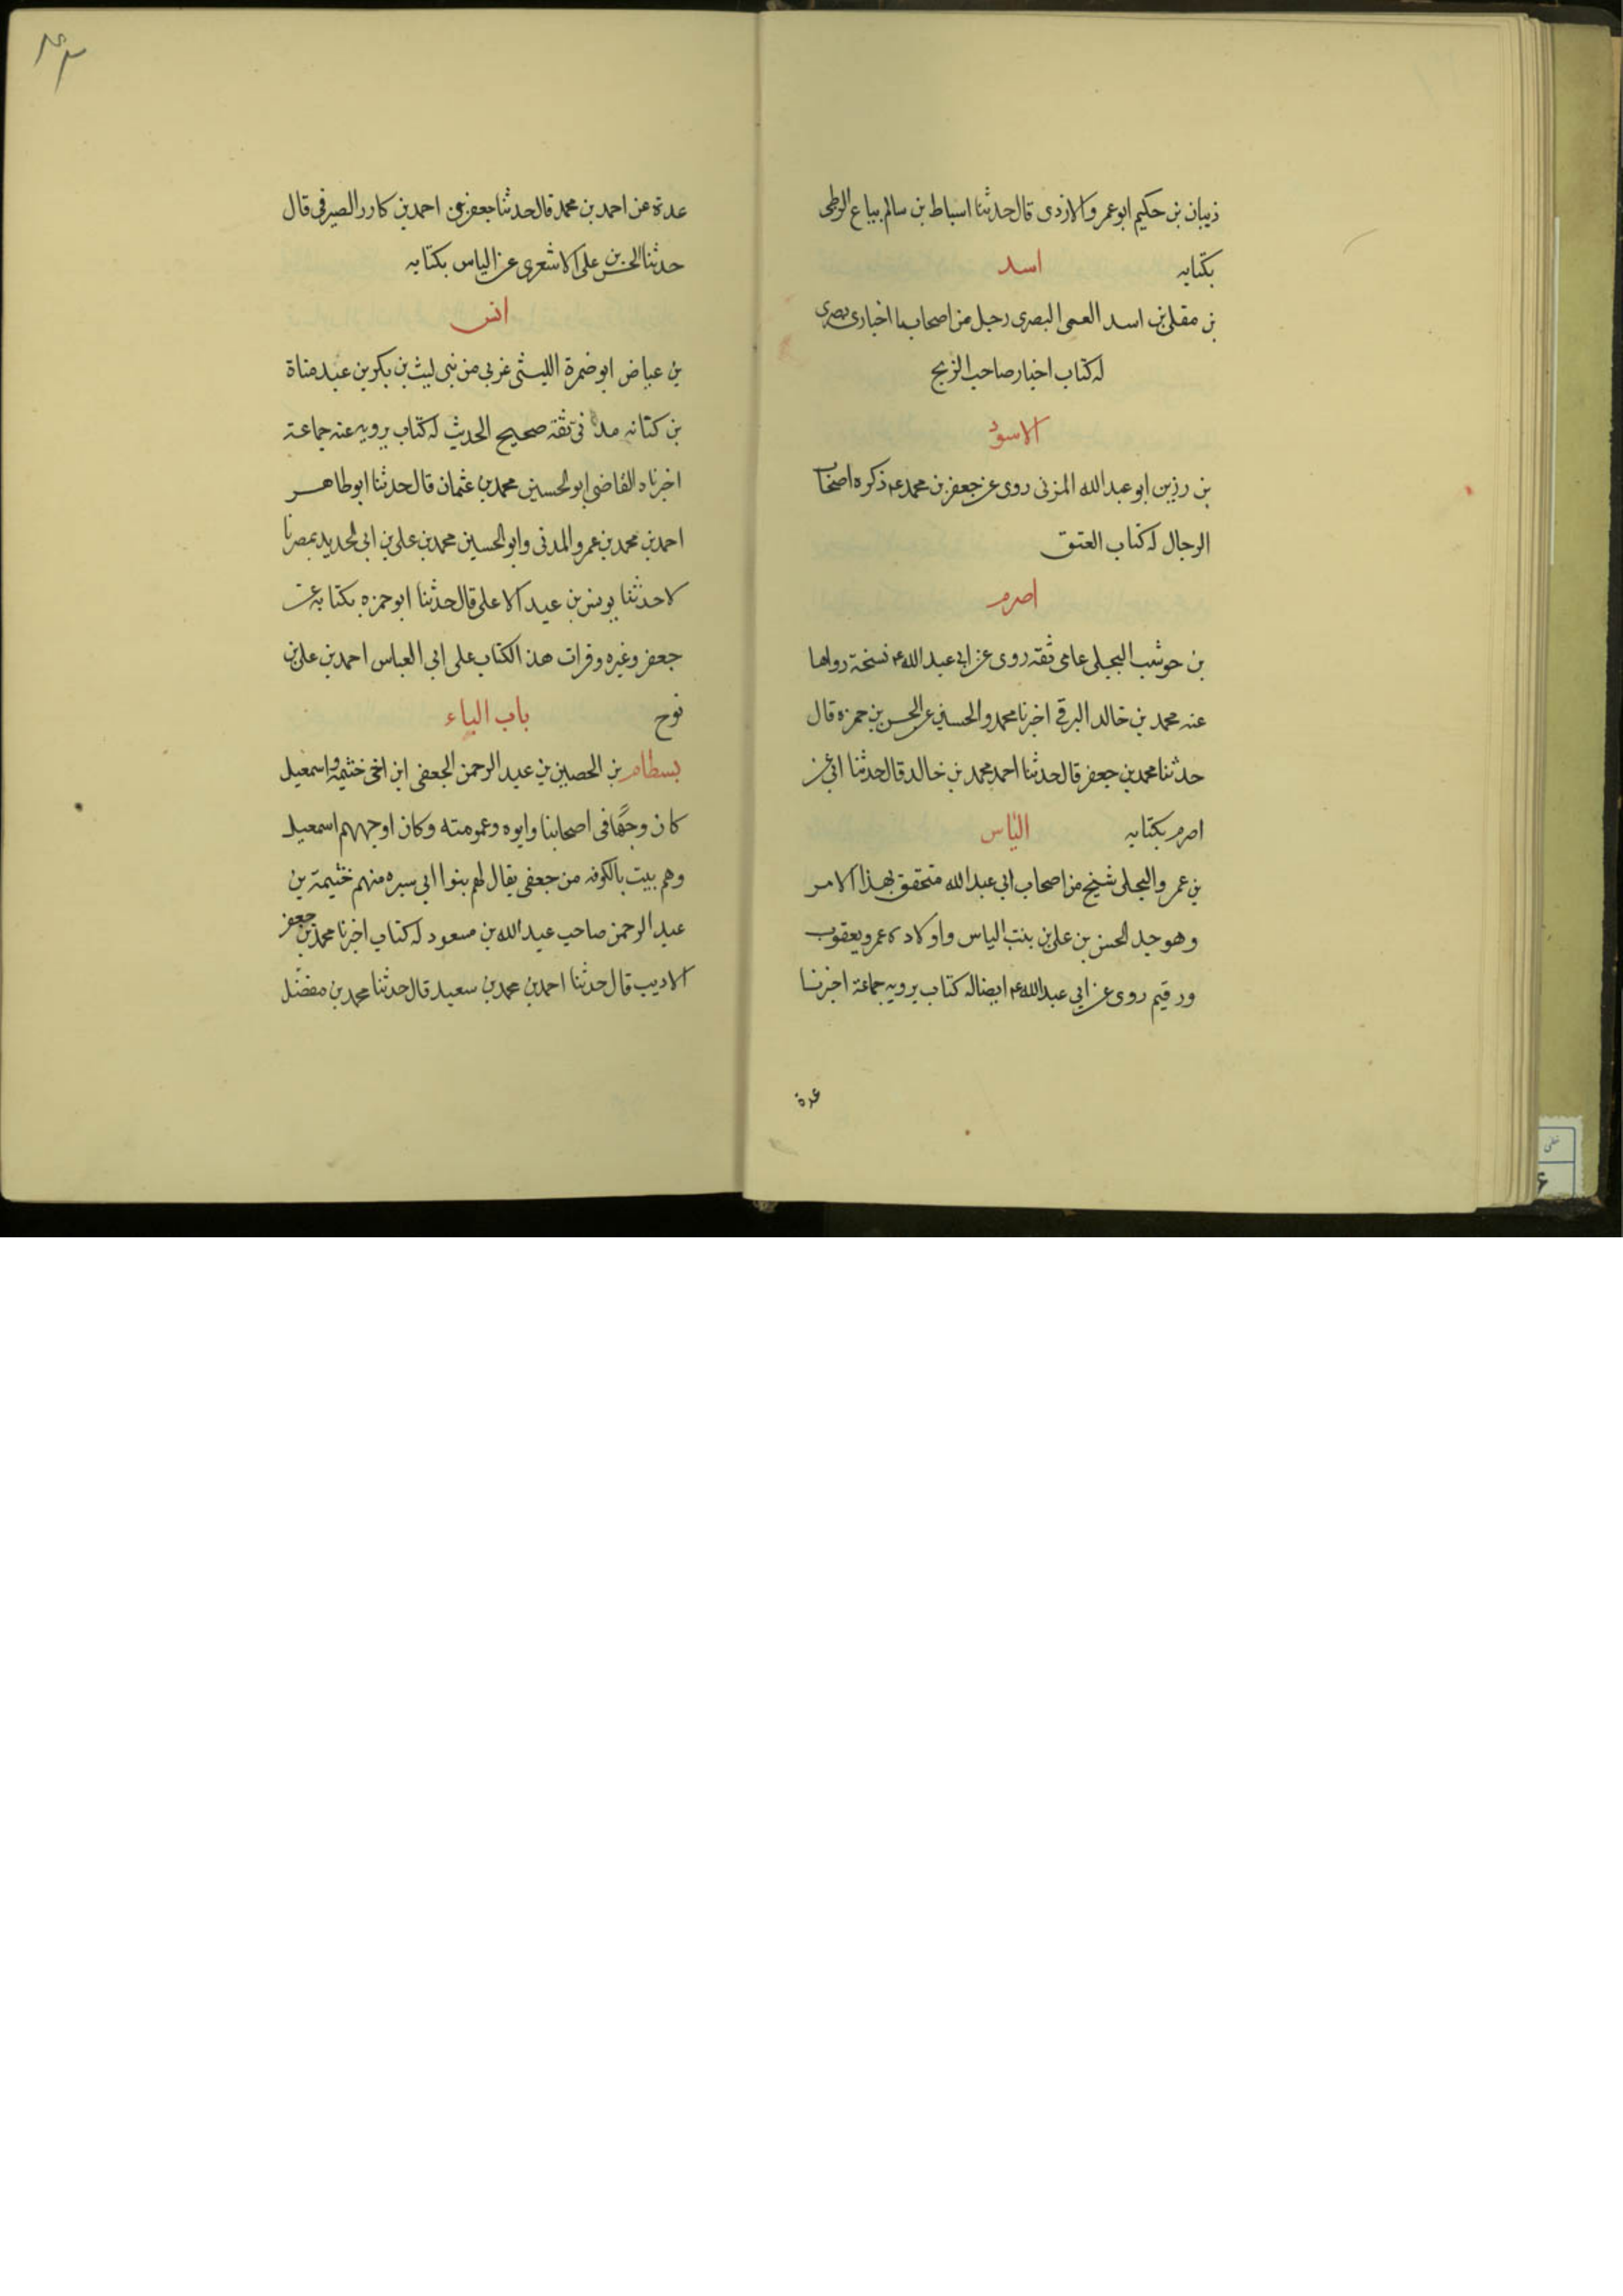 ذبيان بن حكيم ابو عمرو الازدى قال حدثنا اسباط بن سالم بياع الزطى
بكتابه اسد
بن معلى بن اسد العمى البصرى رجل من اصحابنا اخبارى بصرى
له كتاب اخبار صاحب الزنج
الاسود
بن رزين ابو عبد الله المزنى روى عن جعفر بن محمد عم ذكره اصحاب
الرجال له كتاب العتق
اصرم
بن حوشب البجلى عامى ثقه روى عن ابى عبد الله عم نسخة رواها
عنه محمد بن خالد البرقى اخبرنا محمد والحسين عن الحسن بن حمزه قال
حدثنا محمد بن جعفر قال حدثنا احمد محمد بن خالد قال حدثنا ابى عن
اصرم بكتابه الياس
بن عمرو البجلى شيخ من اصحاب ابى عبد الله متحقق بهذا الامر
وهو جد الحسن بن على بن بنت الياس واولاده عمرو يعقوب
ورقيم روى عن ابى عبد الله عم ايضا له كتاب يرويه جماعة اخبرنا
عدة
٤٣
عدة عن احمد بن محمد قال حدثنا جعفر بن احمد بن كازر الصيرفى قال
حدثنا الحسن بن على الاشعرى عن الياس بكتابه
انس
بن عياض ابو ضمرة الليثى عربى من بنى ليث بن بكر بن عبد مناة
بن كنانه مدنى ثقة صحيح الحديث له كتاب يرويه عنه جماعة
اخبرناه القاضى ابو الحسين محمد بن عثمان قال حدثنا ابو طاهر
احمد بن محمد بن عمرو المدنى وابو الحسين محمد بن على بن ابى الحديد بمصر
لا حدثنا يونس بن عبد الاعلى قال حدثنا ابو حمزه بكتابه عن
جعفر وغيره وقرات هذ الكتاب على ابى العباس احمد بن على بن
نوح باب الباء
بسطام بن الحصين بن عبد الرحمن الجعفى ابن اخى خثيمه واسمعيل
كان وجها فى اصحابنا وابوه وعمومته وكان اوجههم اسمعيل
وهم بيت بالكوفه من جعفى يقال لهم بنوا ابى سبره منهم خثيمة بن
عبد الرحمن صاحب عبد الله بن مسعود له كتاب اخبرنا محمد بن جعفر
الاديب قال حدثنا احمد بن محمد بن سعيد قال حدثنا محمد بن مفضل